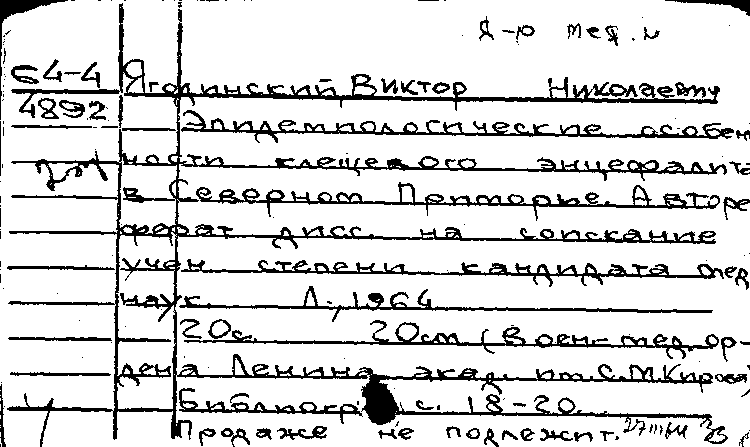 Я-Ю мед. н
64-4 Ягодинский, Виктор Николаевич
4892 Эпидемиологические особен
ности клещевого энцефалита
в Северном Приморье. Авторе
ферат дисс. на соискание
учен степени кандидата мед
наук. Л., 1964
20с. 20см (Воен-мед. ор-
дена Ленина акад. им. С.М. Кирова)
Библиогр с. 18-20.
Продаже не подлежит.